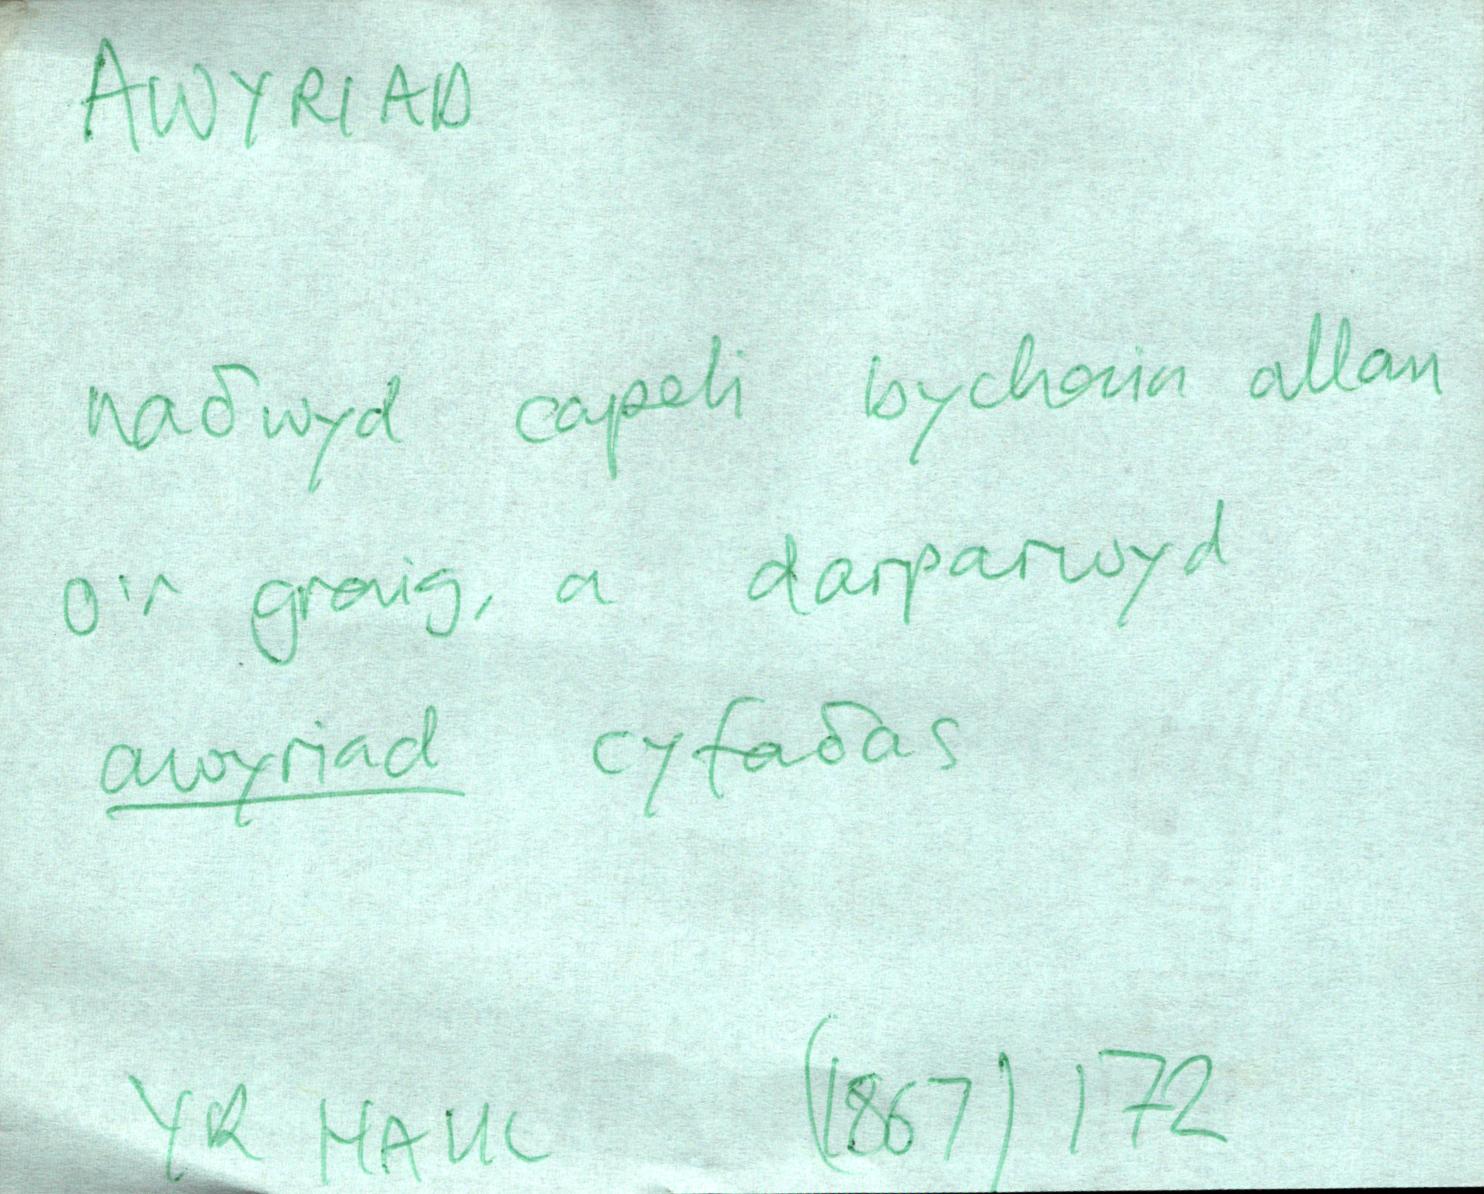 AWYRIAD
naδwyd capeli bychain allan
o'r graig, a darparwyd
awyriad cyfaδas
YR HAUL (1867) 172